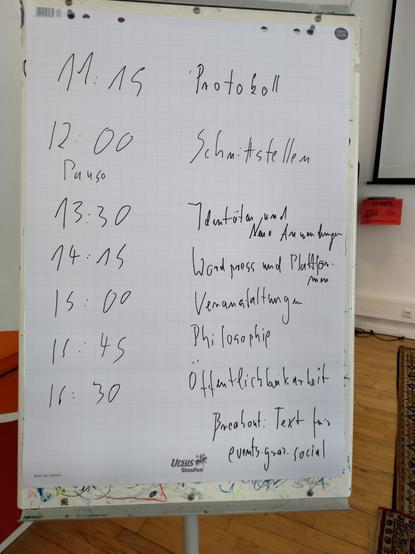 11:15 Protokoll
12:00 Schnittstellen
Pause
13:30 Identitäten und
Neue Anwendungen
14:15 Wordpress und Plattfor-
men
15:00 Veranstaltungen
15:45 Philosophie
16:30 Öffentlichkeitsarbeit
Breakout: Text für
events.graz.social
URSUS
Staufen